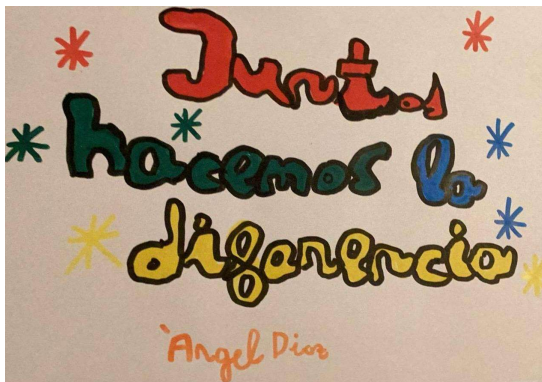 Juntos
hacemos la
diferencia
Angel Diaz